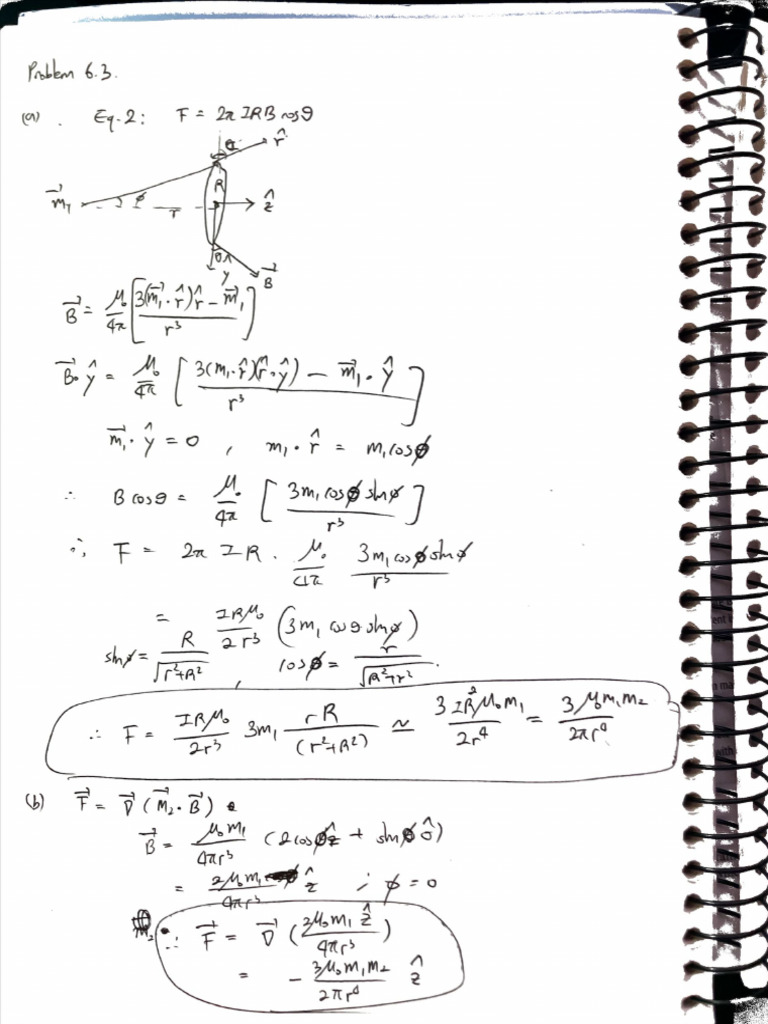 Problem 6.3.
(a). Eq.2: F = 2π IRB cosθ
r̂
R
m⃗₁ φ r ẑ
θ ŷ B⃗
B⃗ = μ₀/4π [3(m⃗₁·r̂)r̂ − m⃗₁ / r³]
B⃗·ŷ = μ₀/4π [3(m₁·r̂)(r̂·ŷ) − m⃗₁·ŷ / r³]
m⃗₁·ŷ = 0 , m₁·r̂ = m₁cosφ
∴ B cosθ = μ₀/4π [3m₁ cosφ sinφ / r³]
∴ F = 2π IR · μ₀/4π 3m₁cosφ sinφ / r³
= IRμ₀/2r³ (3m₁ cosθ sinφ)
sinφ = R/√(r²+R²) , cosφ = r/√(R²+r²) .
∴ F = IRμ₀/2r³ 3m₁ rR/(r²+R²) ≃ 3IR²μ₀m₁/2r⁴ = 3μ₀m₁m₂/2πr⁴
(b) F⃗ = ∇⃗(m⃗₂·B⃗)
B⃗ = μ₀m₁/4πr³ (2cosφẑ + sinφ θ̂)
= 2μ₀m₁/4πr³ ẑ ; φ = 0
∴ F⃗ = ∇⃗ (2μ₀m₁ ẑ/4πr³)
m₂
= − 3μ₀m₁m₂/2πr⁴ ẑ